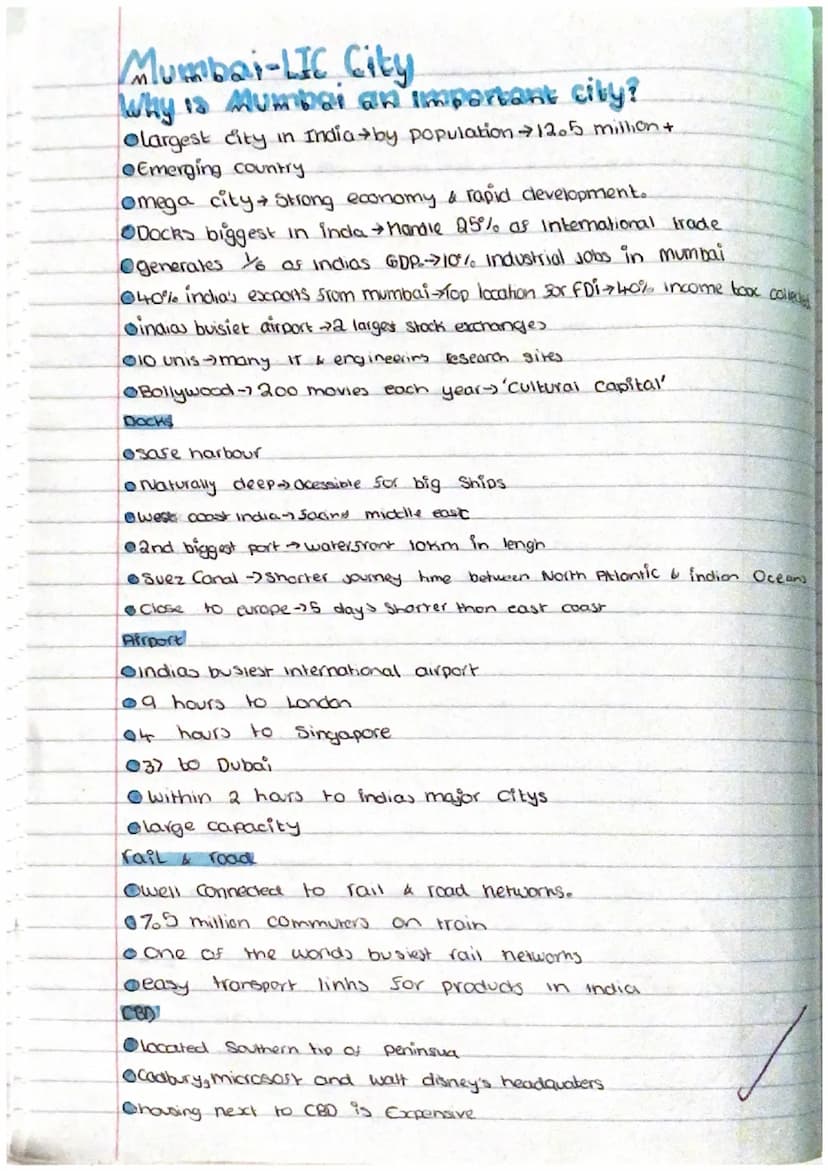 Mumbai-LIC City
Why is Mumbai an important city?
Largest city in India→by population→12.5 million+
Emerging country
mega city→ Strong economy & rapid development.
Docks biggest in inda→Handle 25% of international trade
generates 1/6 of indias GDP.→10% industrial jobs in mumbai
40% india's exports from mumbai→Top location for FDI→40% income tax collected
indias buisiet airport →2 largest stock exchanges
10 unis→many IT & engineering research sites
Bollywood→200 movies each year→'cultural capital'
Docks
safe harbour
Naturally deep→acessible for big ships
west coast india→facing middle east
2nd biggest port→waterfront 10km in lengh
Suez Canal→shorter journey time between North Atlantic & indian Oceans
Close to europe→5 days shorter than east coast
Airport
indias busiest international airport
9 hours to London
4 hours to Singapore
3> to Dubai
within 2 hours to indias major citys
large capacity
rail & road
well connected to rail & road networks.
7.5 million commuters on train
One of the worlds busiest rail networks
easy transport links for products in india
CBD
located Southern tip of peninsua
Cadbury, microsoft and walt disney's headquaters
housing next to CBD is Expensive